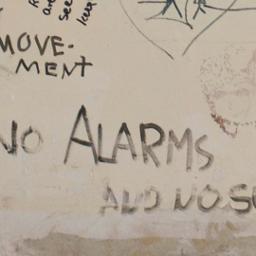 see
MOVE-
MENT
NO ALARMS
AND NO SU